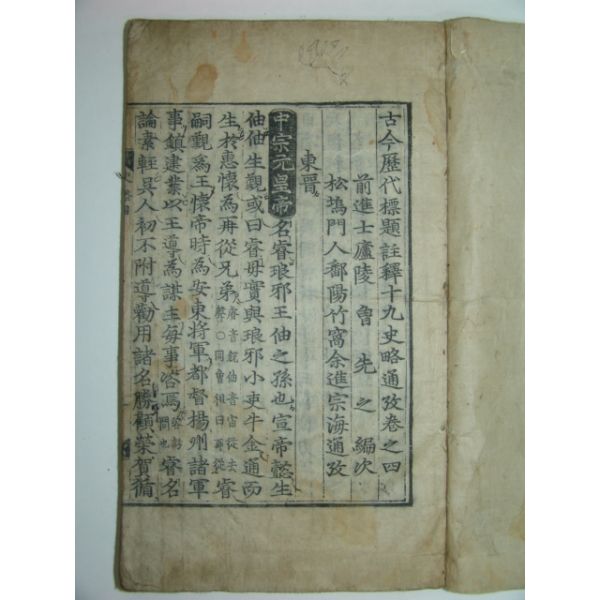 古今歷代標題註釋十九史略通攷卷之四
前進士廬陵曾先之編次
松塢門人鄱陽竹窩余進宗海通攷
東晉
中宗元皇帝名睿琅邪王伷之孫也宣帝懿生
伷伷生覲或曰睿母實與琅邪小吏牛金通而
生於惠懷為再從兄弟睿音銳伷音宙從去聲○同曾祖曰再從睿
嗣覲為王懷帝時為安東將軍都督揚州諸軍
事鎮建業以王導為謀主每事咨焉睿名
論素輕吳人初不附導勸用諸名勝顧榮賀循